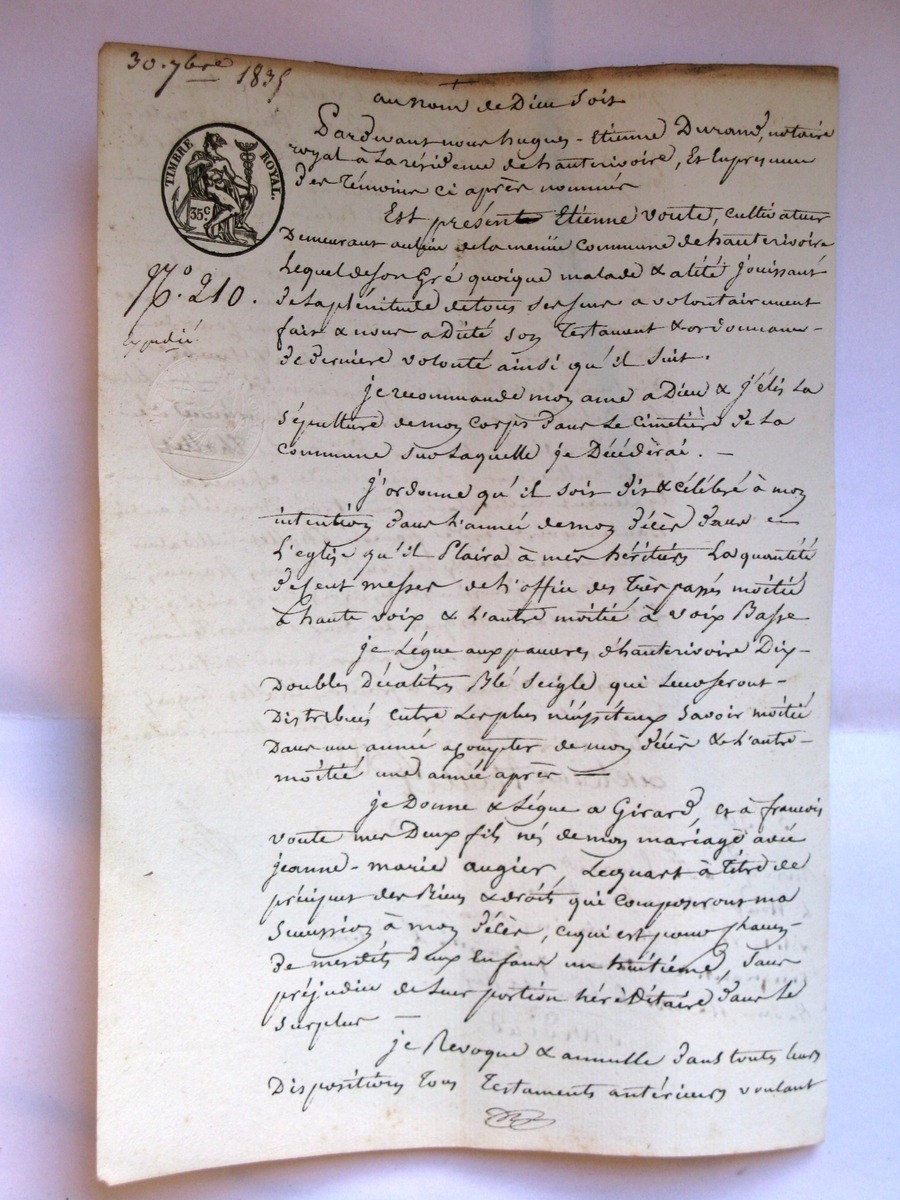 30. 7bre 1835
au nom de Dieu soit
Pardevant nous hugues-Etienne Durand, notaire
royal à la résidence de hauterivoire, Et En presence
des témoins ci après nommés
TIMBRE ROYAL.
35c
Est présent Etienne voute, cultivateur
Demeurant au lieu de la même Commune de hauterivoire
Lequel de son Gré quoique malade & alité jouissant
de la plénitude de tous ses sens a volontairement
No. 210.
fait & nous a Dicté son Testament & ordonnance
expédié
de derniere volonté ainsi qu'il suit.
je recommande mon ame a Dieu & j'élis La
sépulture de mon corps dans Le Cimetière de La
commune sur Laquelle je Décèderai. —
j'ordonne qu'il soit dit & célébré à mon
intention dans L'année de mon décès dans
L'eglise qu'il Plaira à mes héritiers La quantité
de cent messes de L'office des Trèspassés moitié
à haute voix & L'autre moitié à voix Basse
je Lègue aux pauvres d'hauterivoire Dix
Doubles Décalitres Blé seigle qui Leur seront
Distribués entre Les plus nécessiteux savoir moitié
Dans une année a compter de mon décès & L'autre
moitié une année après —
je Donne & Lègue a Girard, et à francois
voute mes Deux fils nés de mon mariage avec
jeanne-marie augier, Le quart à Titre de
préciput des Biens & droits qui composeront ma
succession à mon décès, ce qui est pour chacun
de mesdits deux Enfans un huitième, sans
préjudice de Leur portion héréditaire dans Le
surplus —
je Revoque & annulle dans toutes Leurs
Dispositions Tous Testaments antérieurs voulant